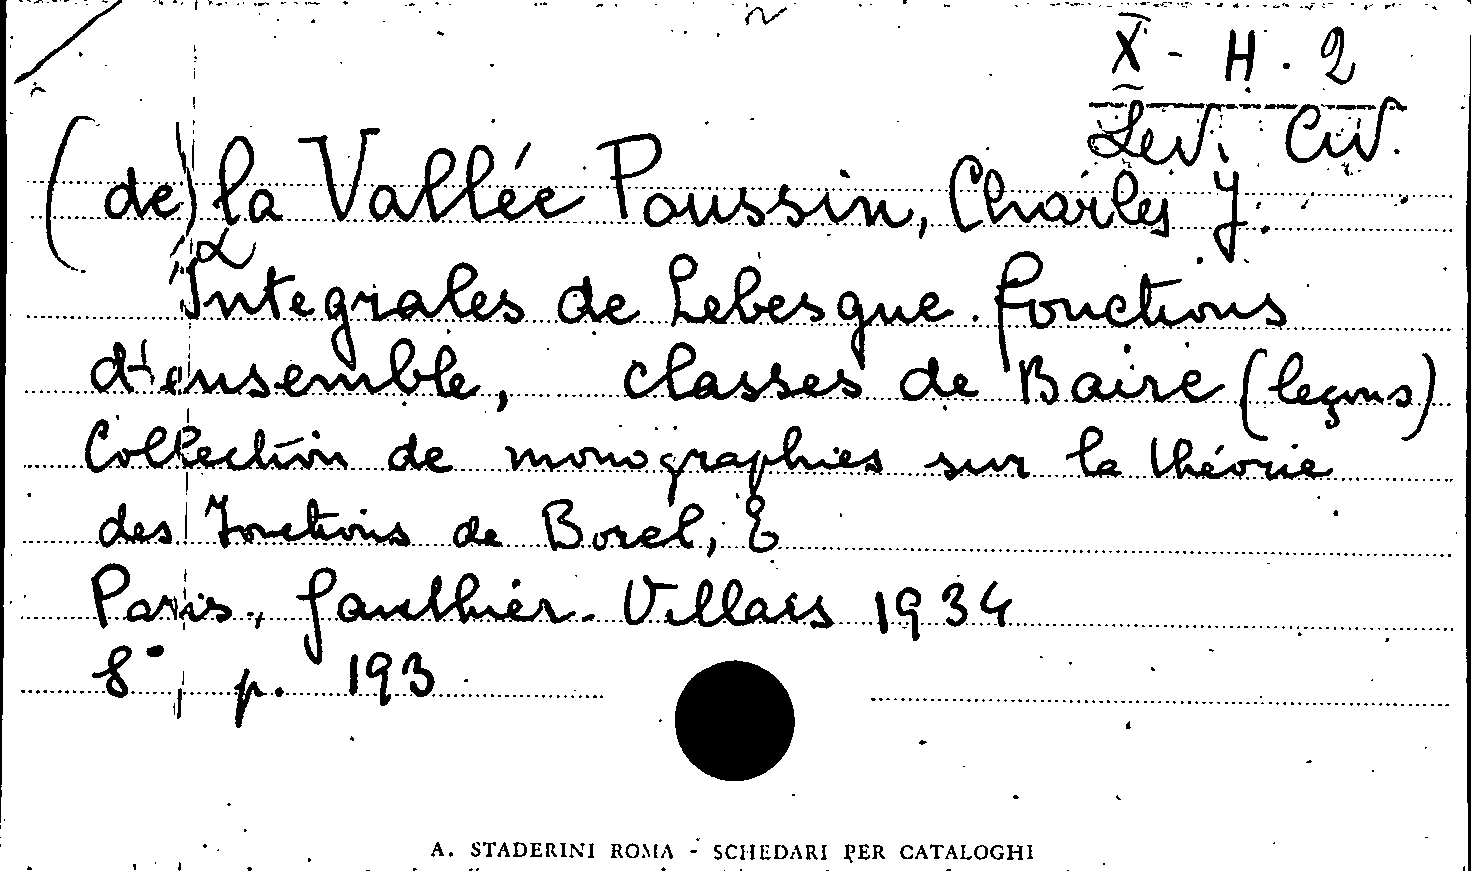 X - H. 2
Lev. Civ.
(de) la Vallée Poussin, Charles J.
Integrales de Lebesgue. fonctions
d'ensemble, classes de Baire (leçons)
Collection de monographies sur la théorie
des Fonctions de Borel, E
Paris, Gauthier-Villars 1934
8°, p. 193
A. STADERINI ROMA - SCHEDARI PER CATALOGHI